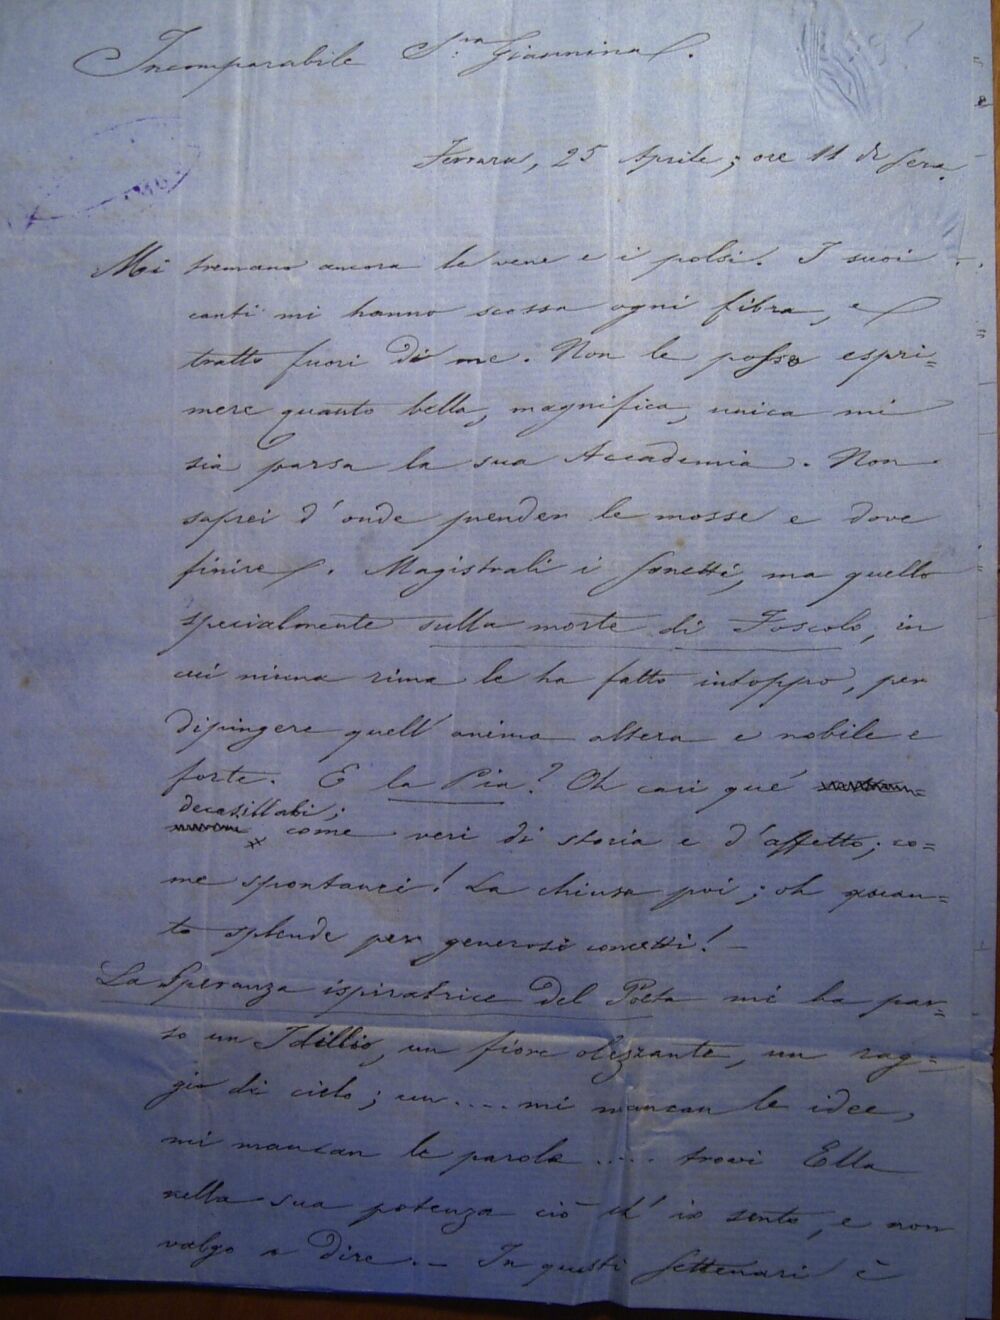 Incomparabile S.ra Giannina.
Ferrara, 25 Aprile; ore 11 di sera.
Mi tremano ancora le vene e i polsi. I suoi
canti mi hanno scossa ogni fibra, e
tratto fuori di me. Non le posso espri=
mere quanto bella, magnifica, unica mi
sia parsa la sua Accademia. Non
saprei d'onde prender le mosse e dove
finire. Magistrali i sonetti, ma quello
specialmente sulla morte di Foscolo, in
cui niuna rima le ha fatto intoppo, per
dipingere quell'anima altera e nobile e
forte. E la Pia? Oh cari qué
decasillabi;
come veri di storia e d'affetto; co=
me spontanei! La chiusa poi; oh quan=
to splende per generosi concetti! –
La Speranza ispiratrice del Poeta mi ha par=
so un Idillio, un fiore olezzante, un rag=
gio di cielo; un .... mi mancan le idee,
mi mancan le parole ..... trovi Ella
nella sua potenza ciò ch'io sento, e non
valgo a dire. – In questi settenari è